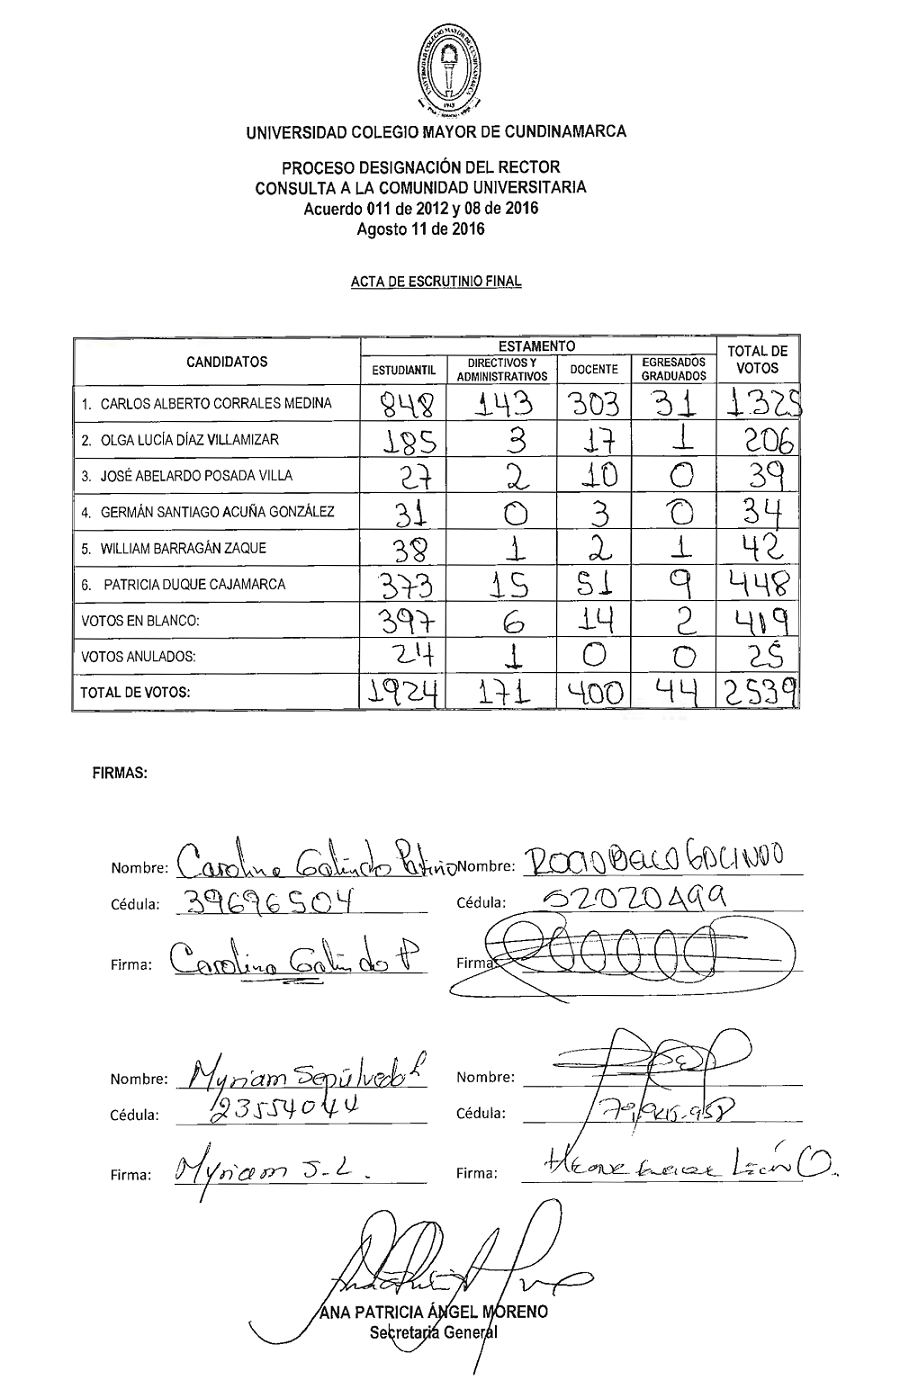 UNIVERSIDAD COLEGIO MAYOR DE CUNDINAMARCA
1945
UNIVERSIDAD COLEGIO MAYOR DE CUNDINAMARCA
PROCESO DESIGNACIÓN DEL RECTOR
CONSULTA A LA COMUNIDAD UNIVERSITARIA
Acuerdo 011 de 2012 y 08 de 2016
Agosto 11 de 2016
ACTA DE ESCRUTINIO FINAL
CANDIDATOS ESTAMENTO TOTAL DE VOTOS
ESTUDIANTIL DIRECTIVOS Y ADMINISTRATIVOS DOCENTE EGRESADOS GRADUADOS
1. CARLOS ALBERTO CORRALES MEDINA 848 143 303 31 1325
2. OLGA LUCÍA DÍAZ VILLAMIZAR 185 3 17 1 206
3. JOSÉ ABELARDO POSADA VILLA 27 2 10 0 39
4. GERMÁN SANTIAGO ACUÑA GONZÁLEZ 31 0 3 0 34
5. WILLIAM BARRAGÁN ZAQUE 38 1 2 1 42
6. PATRICIA DUQUE CAJAMARCA 373 15 51 9 448
VOTOS EN BLANCO: 397 6 14 2 419
VOTOS ANULADOS: 24 1 0 0 25
TOTAL DE VOTOS: 1924 171 400 44 2539
FIRMAS:
Nombre: Carolina Galindo Patiño Nombre: ROCIO BELLO GALINDO
Cédula: 39696504 Cédula: 52020499
Firma: Carolina Galindo P Firma:
Nombre: Myriam Sepúlveda L Nombre:
Cédula: 23554044 Cédula:
Firma: Myriam S. L. Firma: León O.
ANA PATRICIA ÁNGEL MORENO
Secretaria General